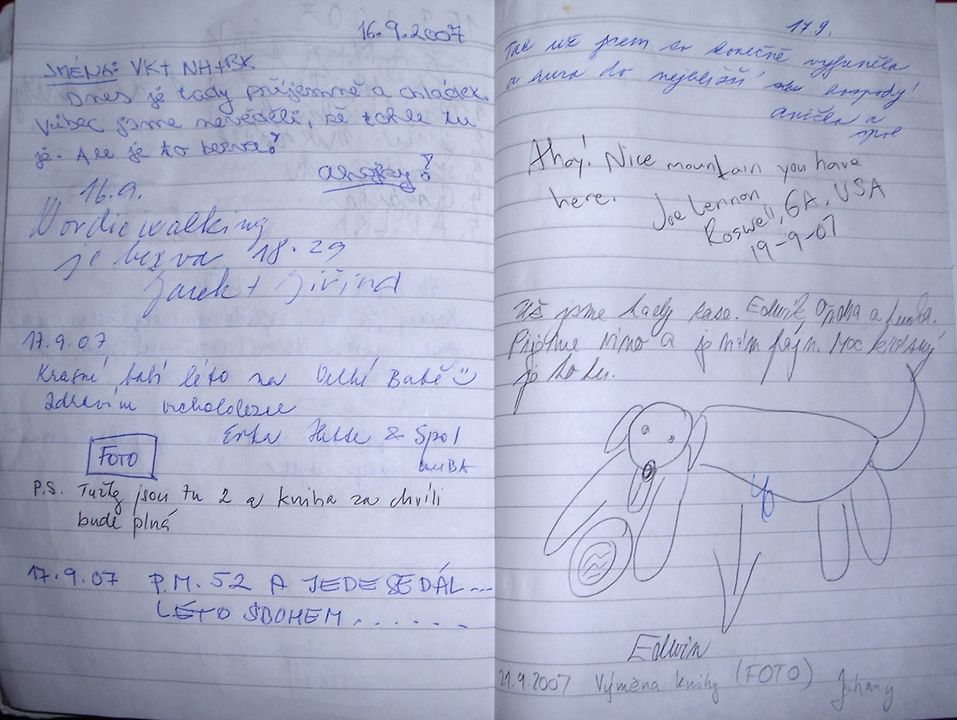 16.9.2007
JMÉNA: VK+ NH+BK
Dnes je tady příjemně a chládek.
Vůbec jsme nevěděli, že tohle tu
je. Ale je to bezva!
ahojky!
16.9.
Nordic walking
je bezva 18.29
Jarek + Jiřina
17.9.07
Krásní babí léto na Velké Babě
Zdravím vrchololezce
Erka & Spol
FOTO
P.S. Tužky jsou tu 2 a kniha za chvíli
bude plná
17.9.07 P.M. 52 A JEDE SE DÁL...
LÉTO SBOHEM.......
17.9.
Tak už jsem to konečně vyfuněla
a hurá do nejbližší hospody!
Anička a
spol
Ahoy! Nice mountain you have
here. Joe Lennon
Roswell, GA, USA
19-9-07
Už jsme tady zase. Edwin, a
a je nám fajn. Moc krásný
je to tu.
Edwin
21.9.2007 Výměna knihy (FOTO) Johany